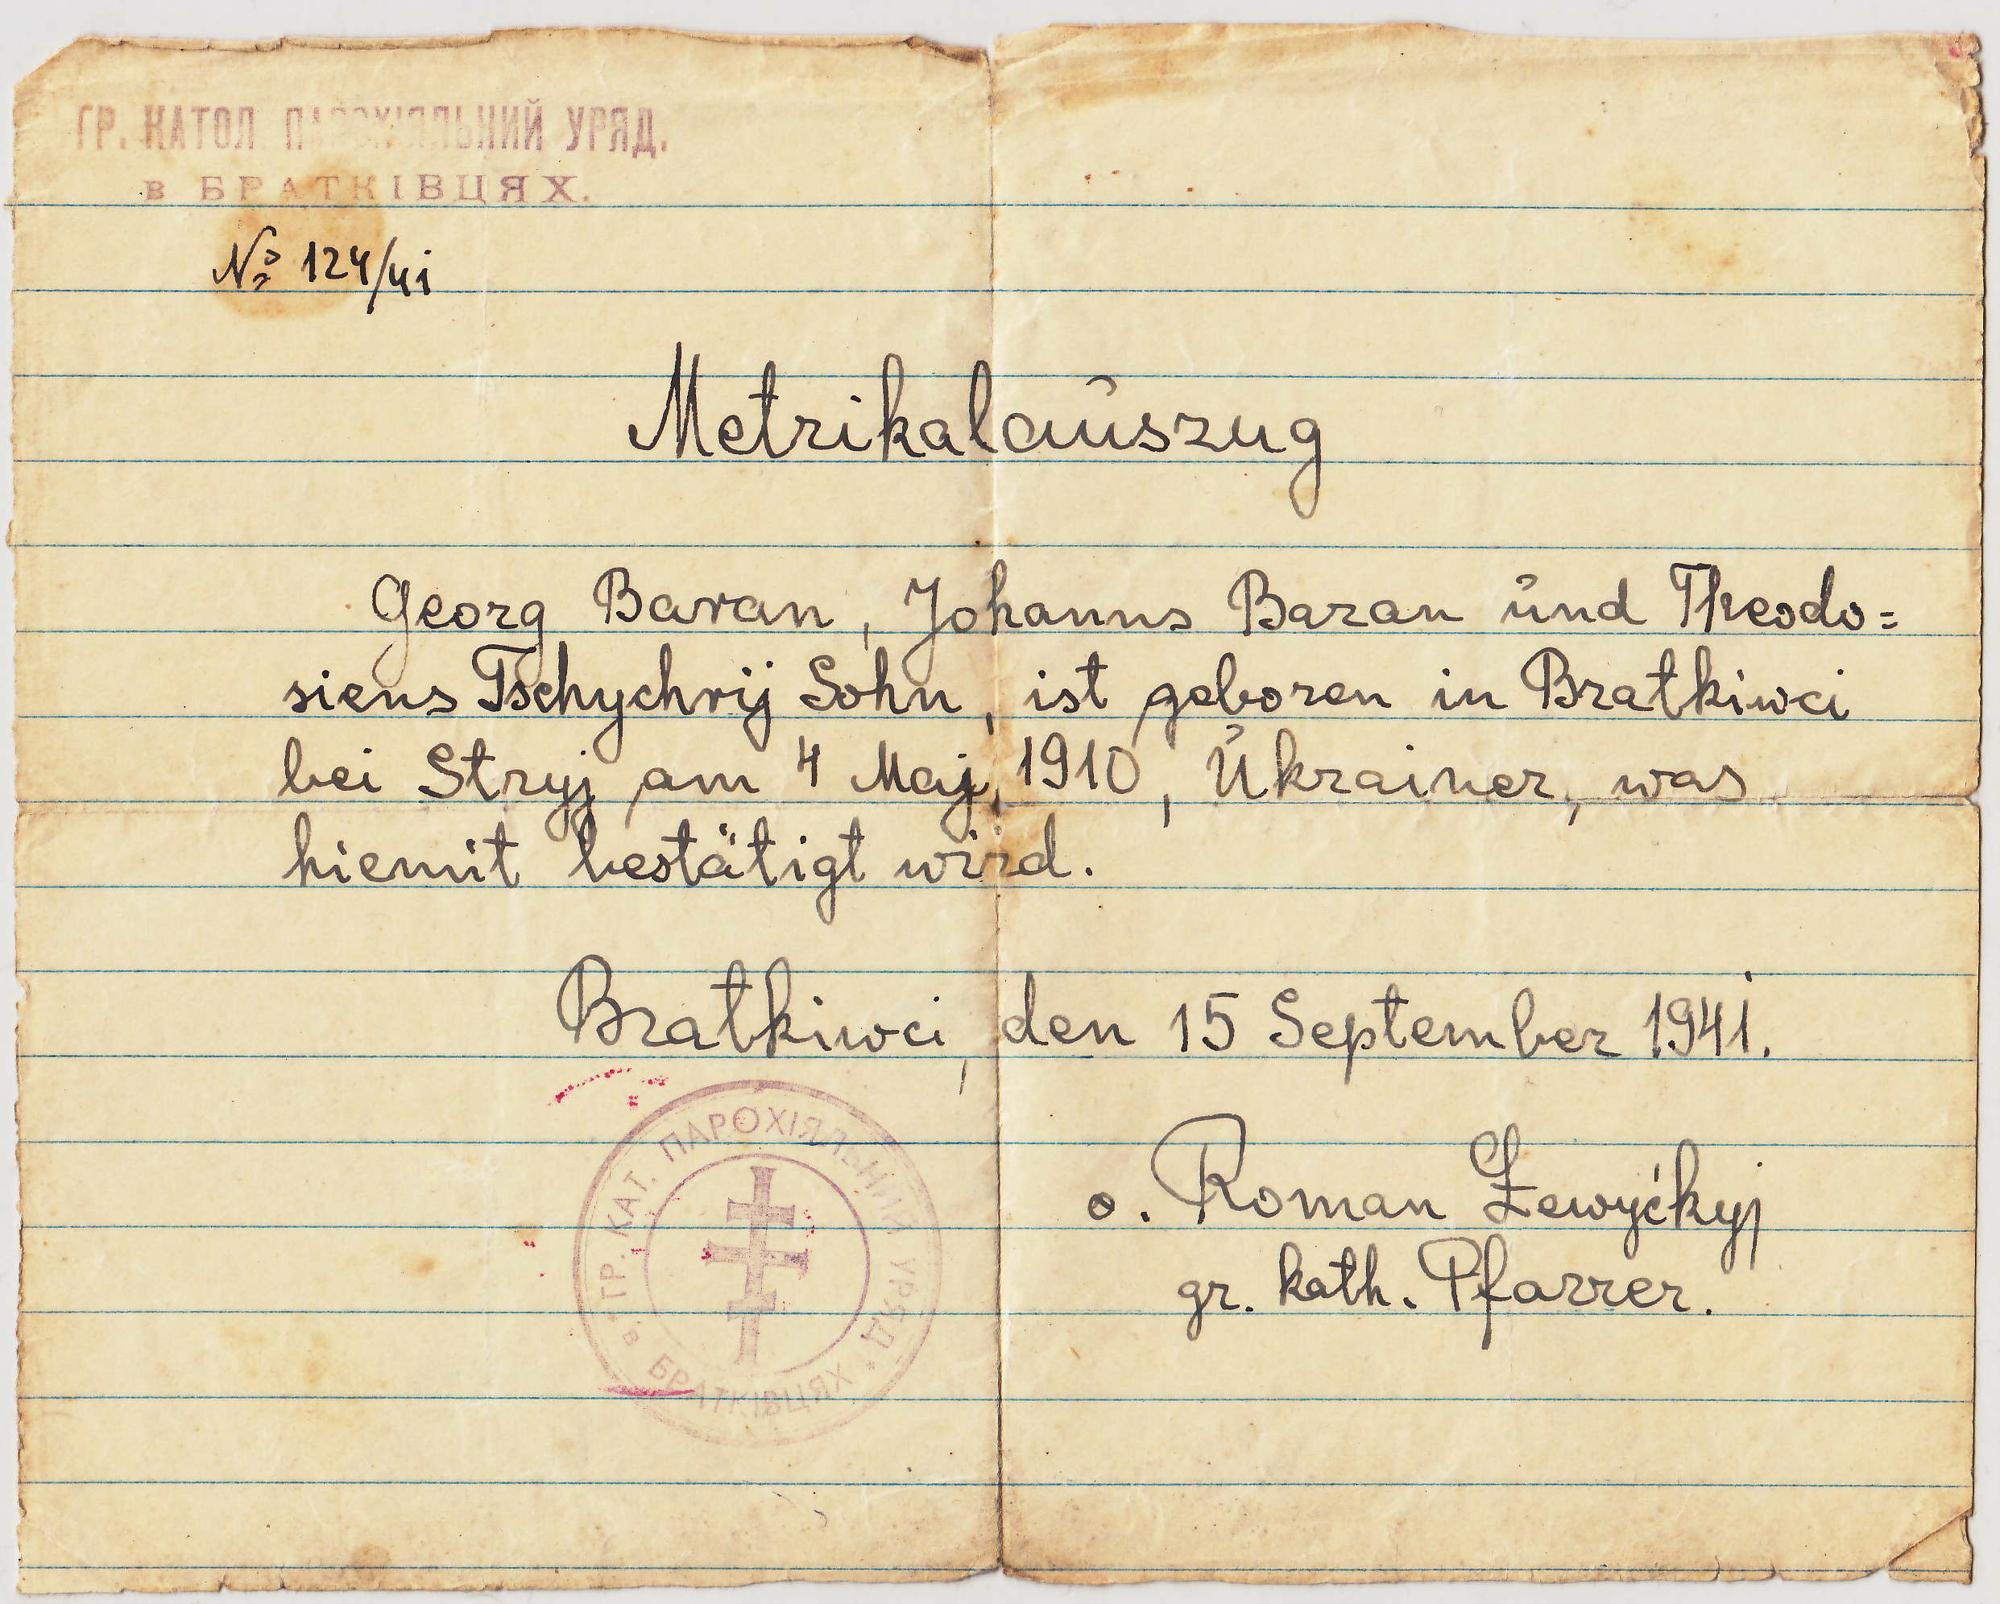 ГР. КАТОЛ ПАРОХІЯЛЬНИЙ УРЯД.
в БРАТКІВЦЯХ.
№ 124/41
Metrikalauszug
Georg Baran, Johanns Baran und Theodo=
siens Tschychrij Sohn, ist geboren in Bratkiwci
bei Stryj am 4 Maj, 1910, Ukrainer, was
hiemit bestätigt wird.
Bratkiwci, den 15 September 1941.
ГР. КАТ. ПАРОХІЯЛЬНИЙ УРЯД *
в БРАТКІВЦЯХ
o. Roman Lewyćkyj
gr. kath. Pfarrer.